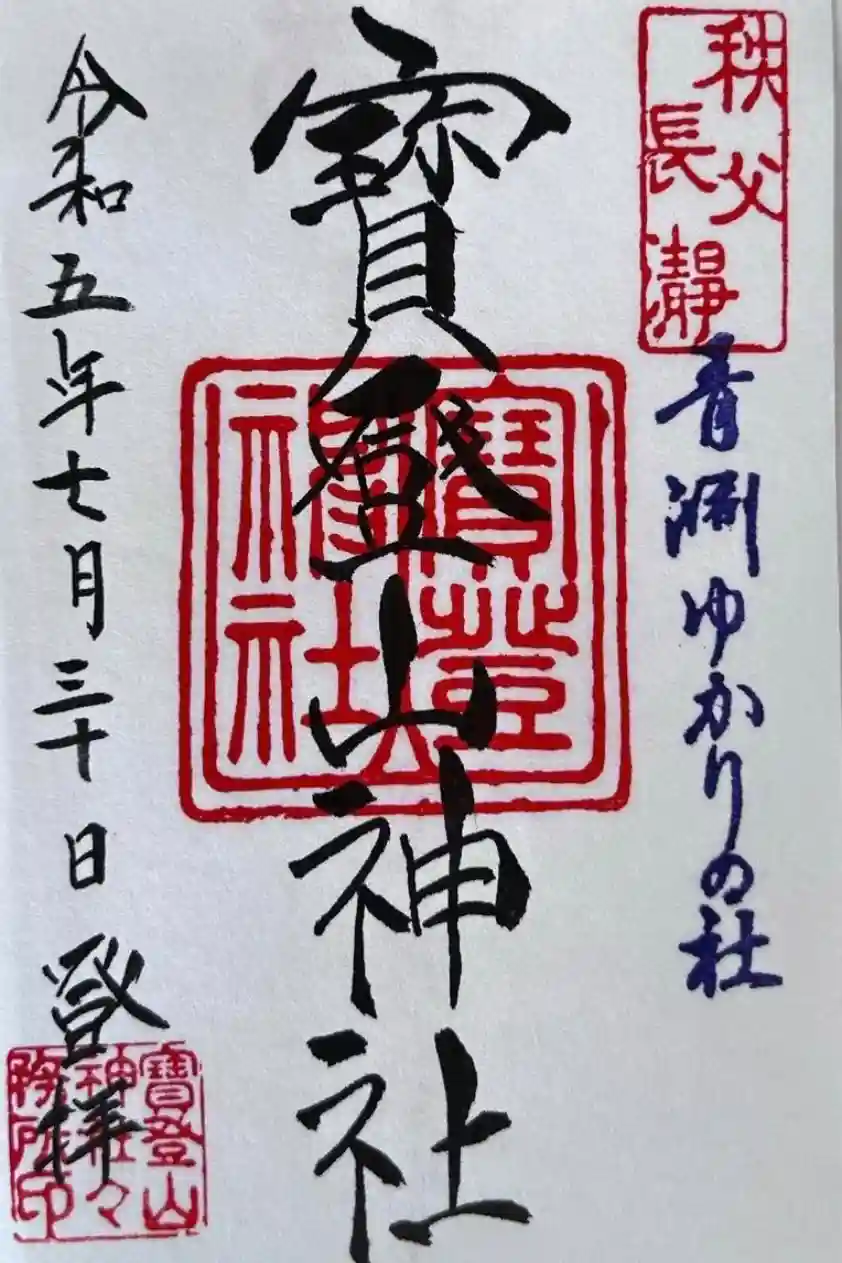 秩父
長瀞
青淵ゆかりの社
寳登山神社
寳登
神社
令和五年七月三十日登拝
寳登山
神社々
務所印